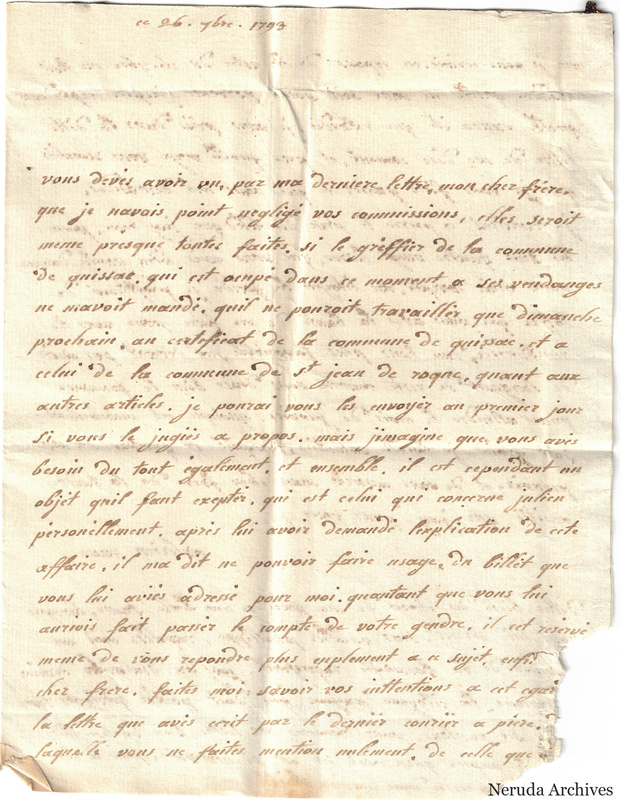 ce 26. 7bre. 1793
vous devés avoir vu, par ma derniere lettre, mon cher frére,
que je navois point negligé vos commissions, elles seroit
meme presque toutes faites, si le gréffier de la commune
de quissac, qui est ocupé dans ce moment a ses vendanges
ne mavoit mandé, quil ne pouroit travailler que dimanche
prochain, au certificat de la commune de quissac, et a
celui de la commune de st jean de roque, quant aux
autres articles, je pourai vous les envoyer au premier jour
si vous le jugiés a propos, mais jimagine que vous avés
besoin du tout également, et ensemble, il est cependant un
objet quil faut exepter, qui est celui qui concerne julien
personéllement, après lui avoir demandé lexplication de cete
affaire, il ma dit ne pouvoir faire usage, du billét que
vous lui aviés adressé pour moi, quautant que vous lui
auriois fait passer le compte de votre gendre, il cet reservé
meme de vous repondre plus enplement a ce sujet, enfi
cher frere, faites moi savoir vos inttentions a cet egar
la lettre que avés ecrit par le derniér couriér a piere,
laquelle vous ne faites mention nulement, de celle que
Neruda Archives